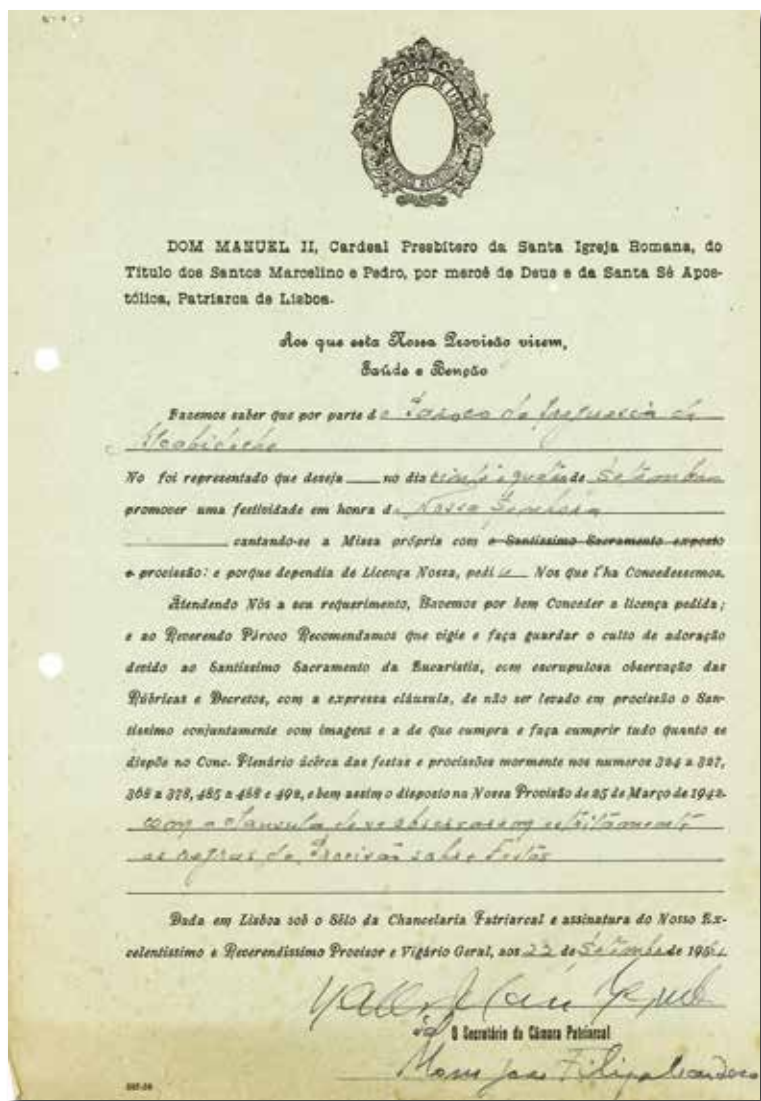 PATRIARCADO DE LISBOA
DOM MANUEL II, Cardeal Presbítero da Santa Igreja Romana, do
Título dos Santos Marcelino e Pedro, por mercê de Deus e da Santa Sé Apos-
tólica, Patriarca de Lisboa.
Aos que esta Nossa Provisão virem,
Saúde e Benção
Fazemos saber que por parte do Pároco da freguesia de
Alcabideche
No foi representado que deseja no dia vinte e quatro de Setembro
promover uma festividade em honra de Nossa Senhora
cantando-se a Missa própria com o Santíssimo Sacramento exposto
e procissão: e porque dependia de Licença Nossa, pedi Nos que l'ha Concedessemos.
Atendendo Nós a seu requerimento, Havemos por bem Conceder a licença pedida;
e ao Reverendo Pároco Recomendamos que vigie e faça guardar o culto de adoração
devido ao Santíssimo Sacramento da Eucaristia, com escrupulosa observação das
Rúbricas e Decretos, com a expressa cláusula, de não ser levado em procissão o San-
tíssimo conjuntamente com imagens e a de que cumpra e faça cumprir tudo quanto se
dispõe no Conc. Plenário ácêrca das festas e procissões mormente nos numeros 324 a 327,
368 a 378, 485 a 488 e 492, e bem assim o disposto na Nossa Provisão de 25 de Março de 1942.
com a clausula de se observarem estritamente
as regras da Provisão sobre Festas
Dada em Lisboa sob o Sêlo da Chancelaria Patriarcal e assinatura do Nosso Ex-
celentíssimo e Reverendíssimo Provisor e Vigário Geral, aos 22 de Setembro de 196
O Secretário da Câmara Patriarcal